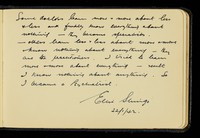 Some doctors learn more + more about less
+ less and finally know everything about
nothing — they become specialists.
— others learn less + less about more + more
+ know nothing about everything — they
are the practitioners. I tried to learn
more + more about everything — until
I knew nothing about anything. So
I became a Psychiatrist.
24/1/52.